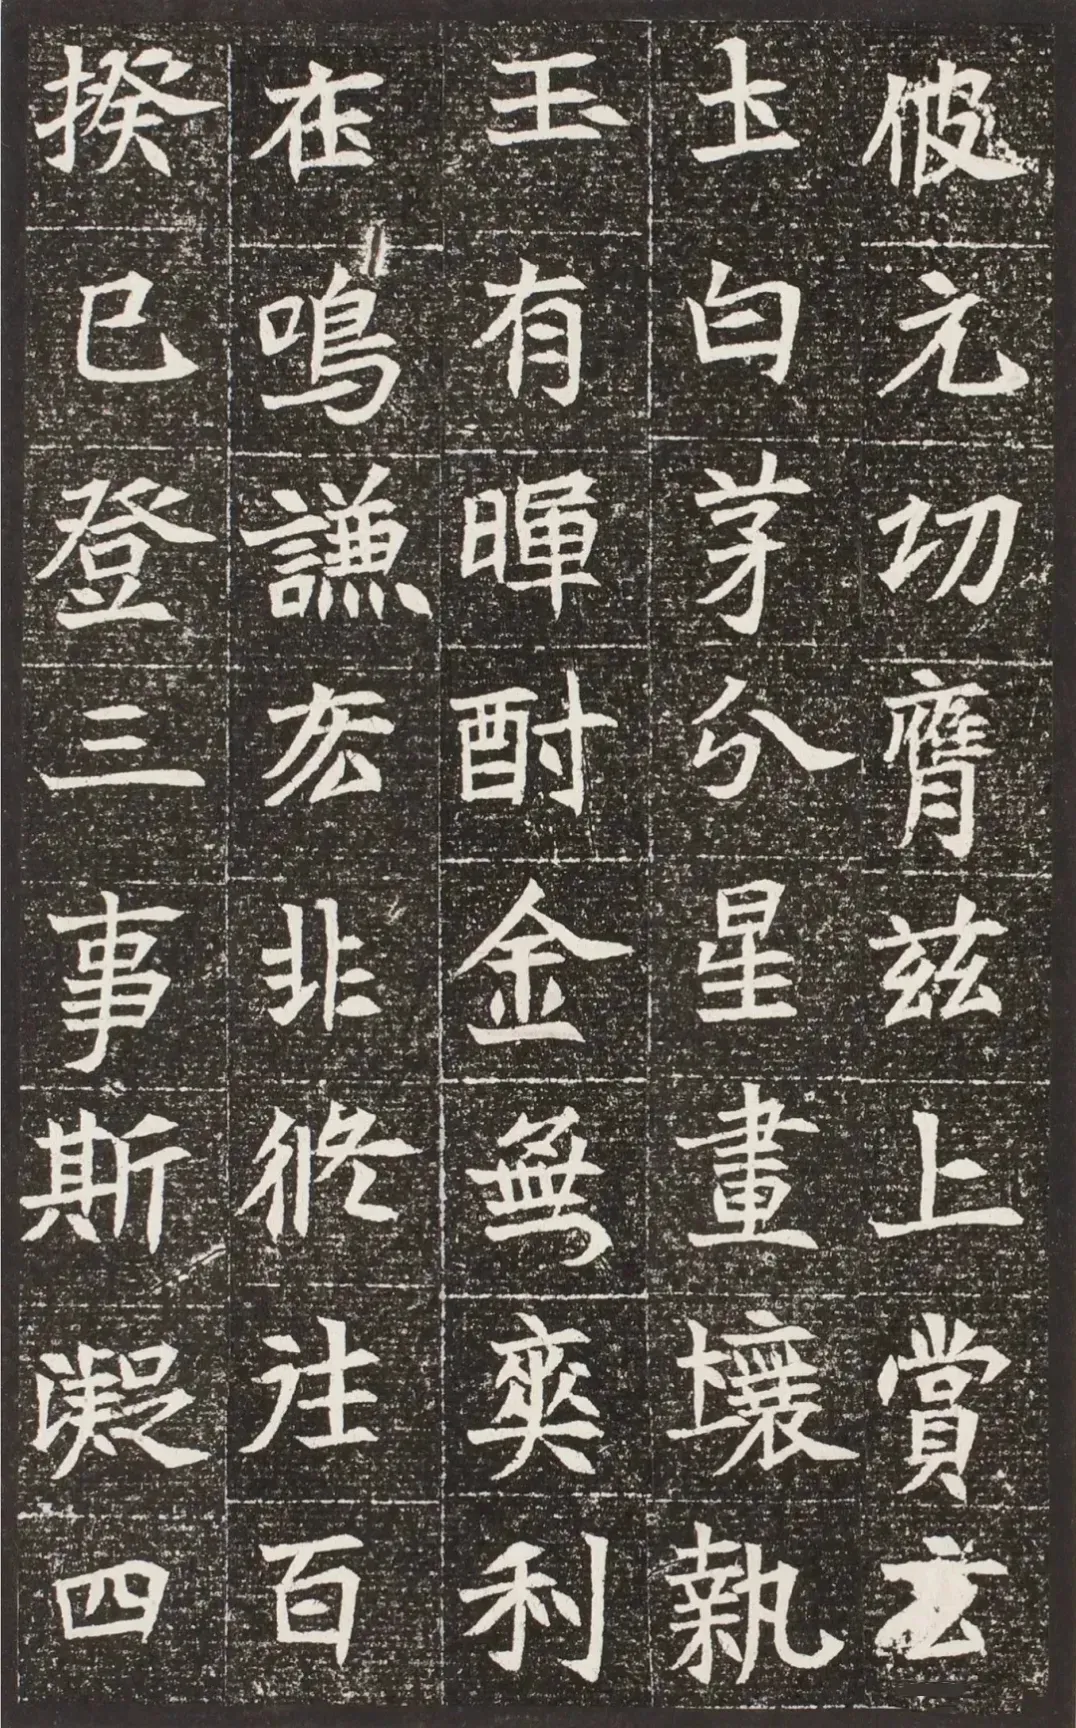 彼元功膺茲上賞玄
土白茅分星畫壤執
玉有暉酎金無爽利
在鳴謙非攸往百
揆已登三事斯凝四